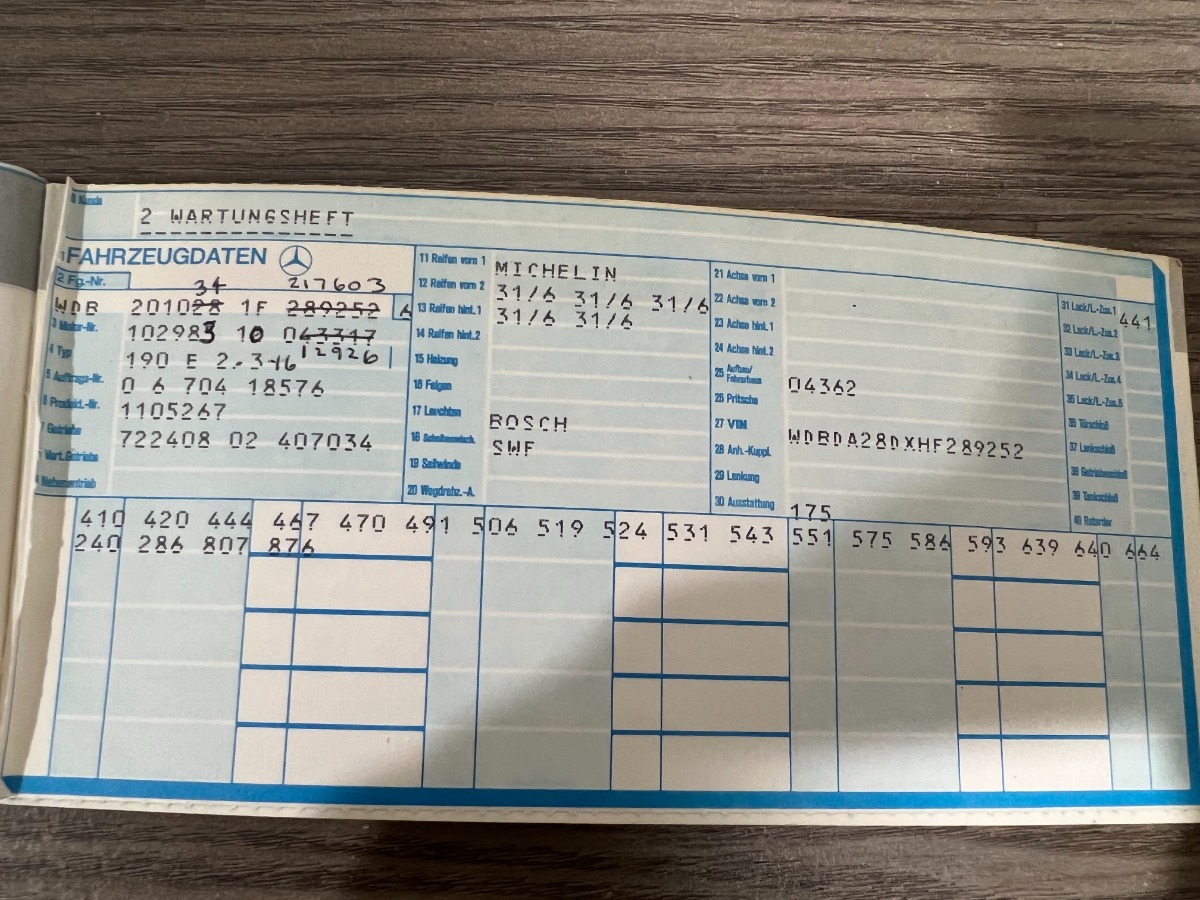 0 Kunde
2 WARTUNGSHEFT
1 FAHRZEUGDATEN
2 Fg.-Nr.
34 217603
WDB 201028 1F 289252 6
3 Motor-Nr.
102983 10 043317
12926
4 Typ
190 E 2.3-16
5 Auftrags-Nr.
0 6 704 18576
6 Produkt.-Nr.
1105267
7 Getriebe
722408 02 407034
Vert.Getriebe
11 Reifen vorn 1
MICHELIN
12 Reifen vorn 2
31/6 31/6 31/6
13 Reifen hint.1
31/6 31/6
14 Reifen hint.2
15 Heizung
16 Felgen
17 Leuchten
BOSCH
18 Scheinwerf.
SWF
19 Seilwinde
20 Wegdrehz.-A.
21 Achse vorn 1
22 Achse vorn 2
23 Achse hint.1
24 Achse hint.2
25 Aufbau/
Fahrerhaus
04362
26 Pritsche
27 VIN
WDBDA28DXHF289252
28 Anh.-Kuppl.
29 Lenkung
30 Ausstattung
175
31 Lack/L.-Zus.1
441
32 Lack/L.-Zus.2
33 Lack/L.-Zus.3
34 Lack/L.-Zus.4
35 Lack/L.-Zus.5
36 Türschloß
37 Lenkschloß
38 Getriebeschloß
39 Tankschloß
40 Retarder
410 420 444 467 470 491 506 519 524 531 543 551 575 586 593 639 640 664
240 286 807 876